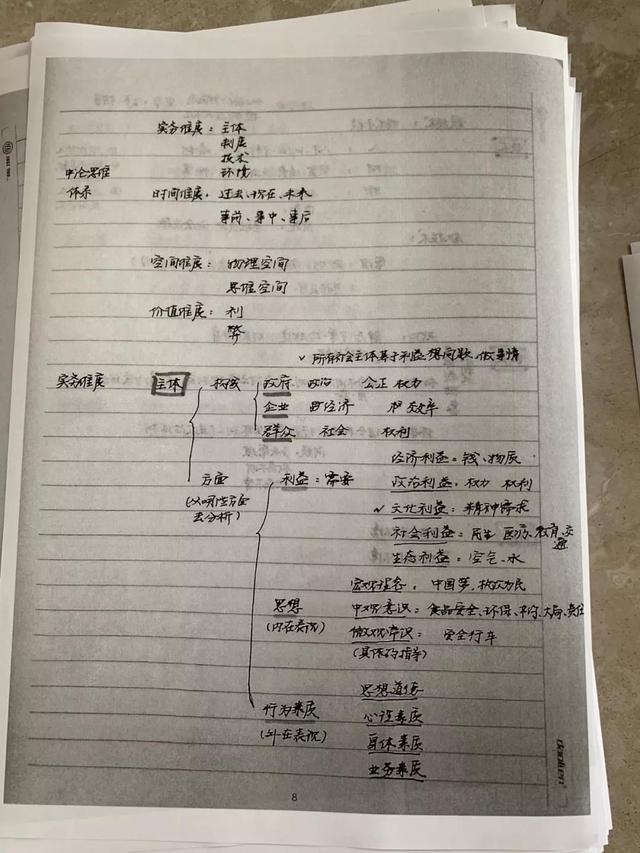 实务维度：主体
制度
技术
申论思维 环境
体系 时间维度：过去、现在、未来
事前、事中、事后
空间维度：物理空间
思维空间
价值维度：利
弊
√ 所有社会主体基于利益想问题、做事情
实务维度 主体 构成 政府 政治 公正 权力
企业 经济 效率
群众 社会 权利
经济利益：钱、物质
方面 利益：需要 政治利益：权力 权利
(从哪些方面 文化利益：精神需求
去分析) 社会利益：民生 医疗、教育、交通
生态利益：空气、水
宏观理念：中国梦、执政为民
思想 中观意识：食品安全、环保、大局、责任
(内在表现) 微观常识：安全行车
(具体的指导)
思想道德
行为素质 心理素质
(外在表现) 身体素质
业务素质
8